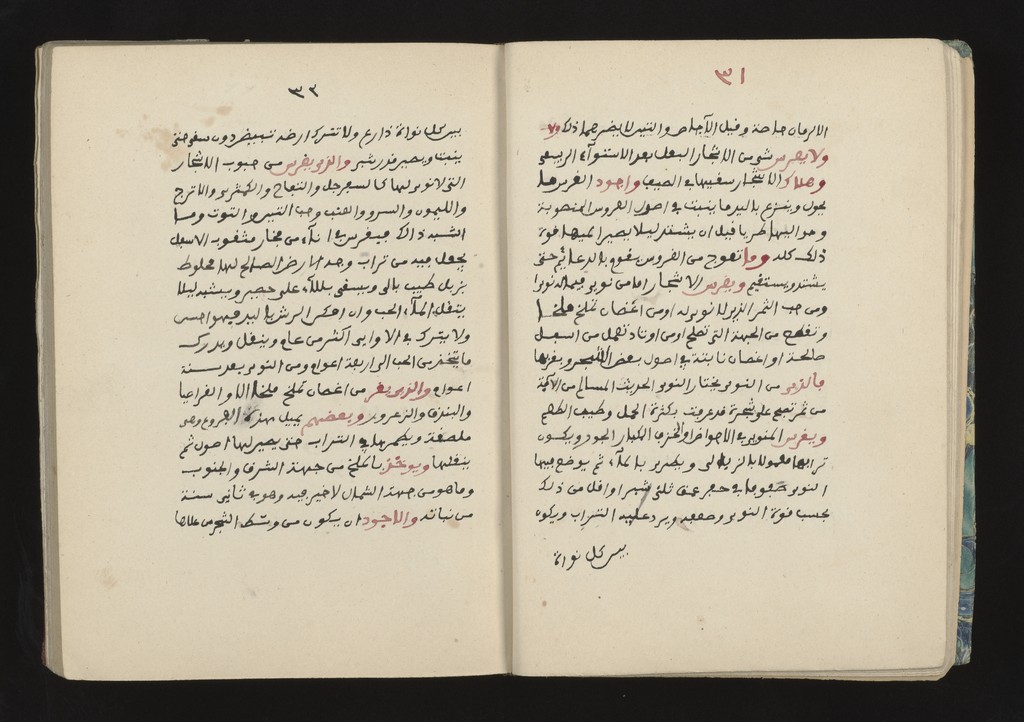 ٣١
الا الرمان خاصة وقيل الاجاص والتين لا يضرهما ذلك
ولا يغرس شيء من الاشجار البعل بعد الاستواء الربيعي
وهلاك الاشجار سقيها في الصيف واجود الغرس ما
يحول وينزع باليد ما ينبت في اصول الغروس المنصوبة
وحواليها طريا قبل ان يشتد ليلا يصير اليها قوة
ذلك كله وما تعوج من الغروس يقوم بالدعائم حتى
يشتد ويستقيم ويغرس الاشجار اما من نوى فيما له نوى
ومن حب الثمر الذي لا نوى له او من اغصان تملخ ملخا
وتقطع من الجهة التي تصلح او من اوتاد تعمل من اسفل
صالحة او اغصان نابتة في اصول بعض الشجر وبقربها
فالذي من النوى يختار النوى الحديث السالم من الآفة
من ثمر نضج على شجرة قد عرفت بكثرة الحمل وطيب الطعم
ويغرس النوى في الاحواض او الخزف الكبار الجدد ويكون
ترابها مخلوطا بالزبل البالي ويطيب بالماء ثم يوضع فيها
النوى صفوفا في حفر عمق ثلثي شبر او اقل من ذلك
بحسب قوة النوى وضعفه ويرد عليه التراب ويكون
بين كل نواة
٣٢
بين كل نواة ذراع ولا تترك ارضه تبيض دون سقي حتى
ينبت ويصير قدر شبر والذي يغرس من حبوب الاشجار
التي لا نوى لها كالسفرجل والتفاح والكمثرى والاترج
والليمون والسرو والعنب وحب التين والتوت وما
اشبه ذلك فيغرس في اناء من فخار مثقوب الاسفل
يجعل فيه من تراب وجه الارض الصالح لها مخلوط
بزبل طيب بالي ويسقى بالماء على حصير وشبهه ليلا
ينقل الماء الحب وان امكن الرش باليد فهو احسن
ولا يترك في الاواني اكثر من عام وينقل ويدرك
ما يتخذ من الحب الى اربعة اعوام ومن النوى بعد ستة
اعوام والذي يغرس من اغصان تملخ ملخا اللوز والقراصيا
والبندق والزعرور وبعضهم يميل هذه الفروع وهي
ملصقة ويطمرها في التراب حتى يصير لها اصول ثم
ينقلها ويوخذ ما يملخ من جهة الشرق والجنوب
وما هو من جهة الشمال لا خير فيه وهو في ثاني سنة
من نباته والاجود ان يكون من وسط الشجر من